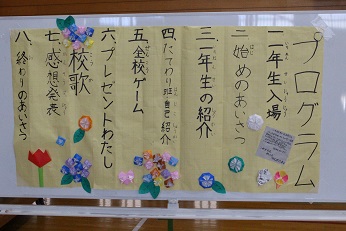 プログラム
一一年生入場
二始めのあいさつ
三一年生の紹介
四たてわり班自己紹介
五全校ゲーム
六プレゼントわたし
校歌
七感想発表
八終わりのあいさつ